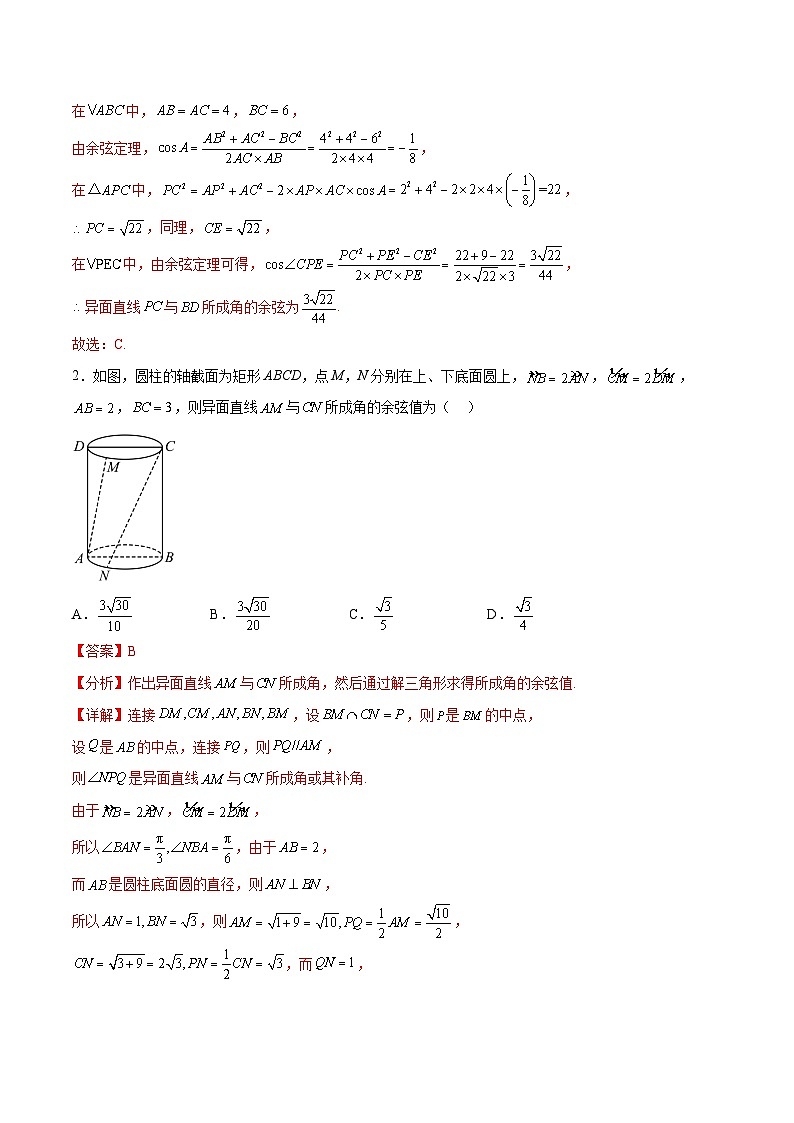 在VABC中，AB = AC = 4，BC = 6，
由余弦定理，cos A = \frac{AB² + AC² − BC²}{2AC × AB} = \frac{4² + 4² − 6²}{2×4×4} = −\frac{1}{8}，
在△APC中，PC² = AP² + AC² − 2×AP×AC×cos A = 2² + 4² − 2×2×4×(−\frac{1}{8})=22，
∴ PC = √22，同理，CE = √22，
在VPEC中，由余弦定理可得，cos∠CPE = \frac{PC² + PE² − CE²}{2×PC×PE} = \frac{22+9−22}{2×√22×3} = \frac{3√22}{44}，
∴ 异面直线PC与BD所成角的余弦为\frac{3√22}{44}.
故选：C.
2．如图，圆柱的轴截面为矩形ABCD，点M，N分别在上、下底面圆上，NB = 2AN，CM = 2DM，
AB = 2，BC = 3，则异面直线AM与CN所成角的余弦值为（ ）
D C
M
A B
N
A．\frac{3√30}{10} B．\frac{3√30}{20} C．\frac{√3}{5} D．\frac{√3}{4}
【答案】B
【分析】作出异面直线AM与CN所成角，然后通过解三角形求得所成角的余弦值.
【详解】连接DM,CM,AN,BN,BM，设BM∩CN = P，则P是BM的中点，
设Q是AB的中点，连接PQ，则PQ//AM，
则∠NPQ是异面直线AM与CN所成角或其补角.
由于NB = 2AN，CM = 2DM，
所以∠BAN = \frac{π}{3},∠NBA = \frac{π}{6}，由于AB = 2，
而AB是圆柱底面圆的直径，则AN ⊥ BN，
所以AN = 1, BN = √3，则AM = √1+9 = √10, PQ = \frac{1}{2}AM = \frac{√10}{2}，
CN = √3+9 = 2√3, PN = \frac{1}{2}CN = √3，而QN = 1，